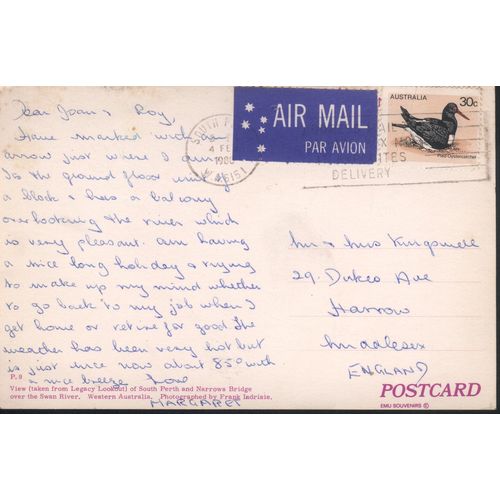 Dear Joan & Roy,
Have marked with an
arrow just where I am
Its the ground floor unit of
a block & has a balcony
overlooking the river which
is very pleasant. am having
a nice long holiday & trying
to make up my mind whether
to go back to my job when I
get home or retire for good. The
weather has been very hot but
is just nice now about 85° with
a nice breeze Love
MARGARET
P.9
View (taken from Legacy Lookout) of South Perth and Narrows Bridge
over the Swan River, Western Australia. Photographed by Frank Indrisie.
SOUTH
4 FE
1980
W.A. 6151
AIR MAIL
PAR AVION
DELIVERY
AUSTRALIA
30c
Pied Oystercatcher
Mr & Mrs Kingswell
29. Dukes Ave
Harrow
Middlesex
ENGLAND
POSTCARD
EMU SOUVENIRS ©